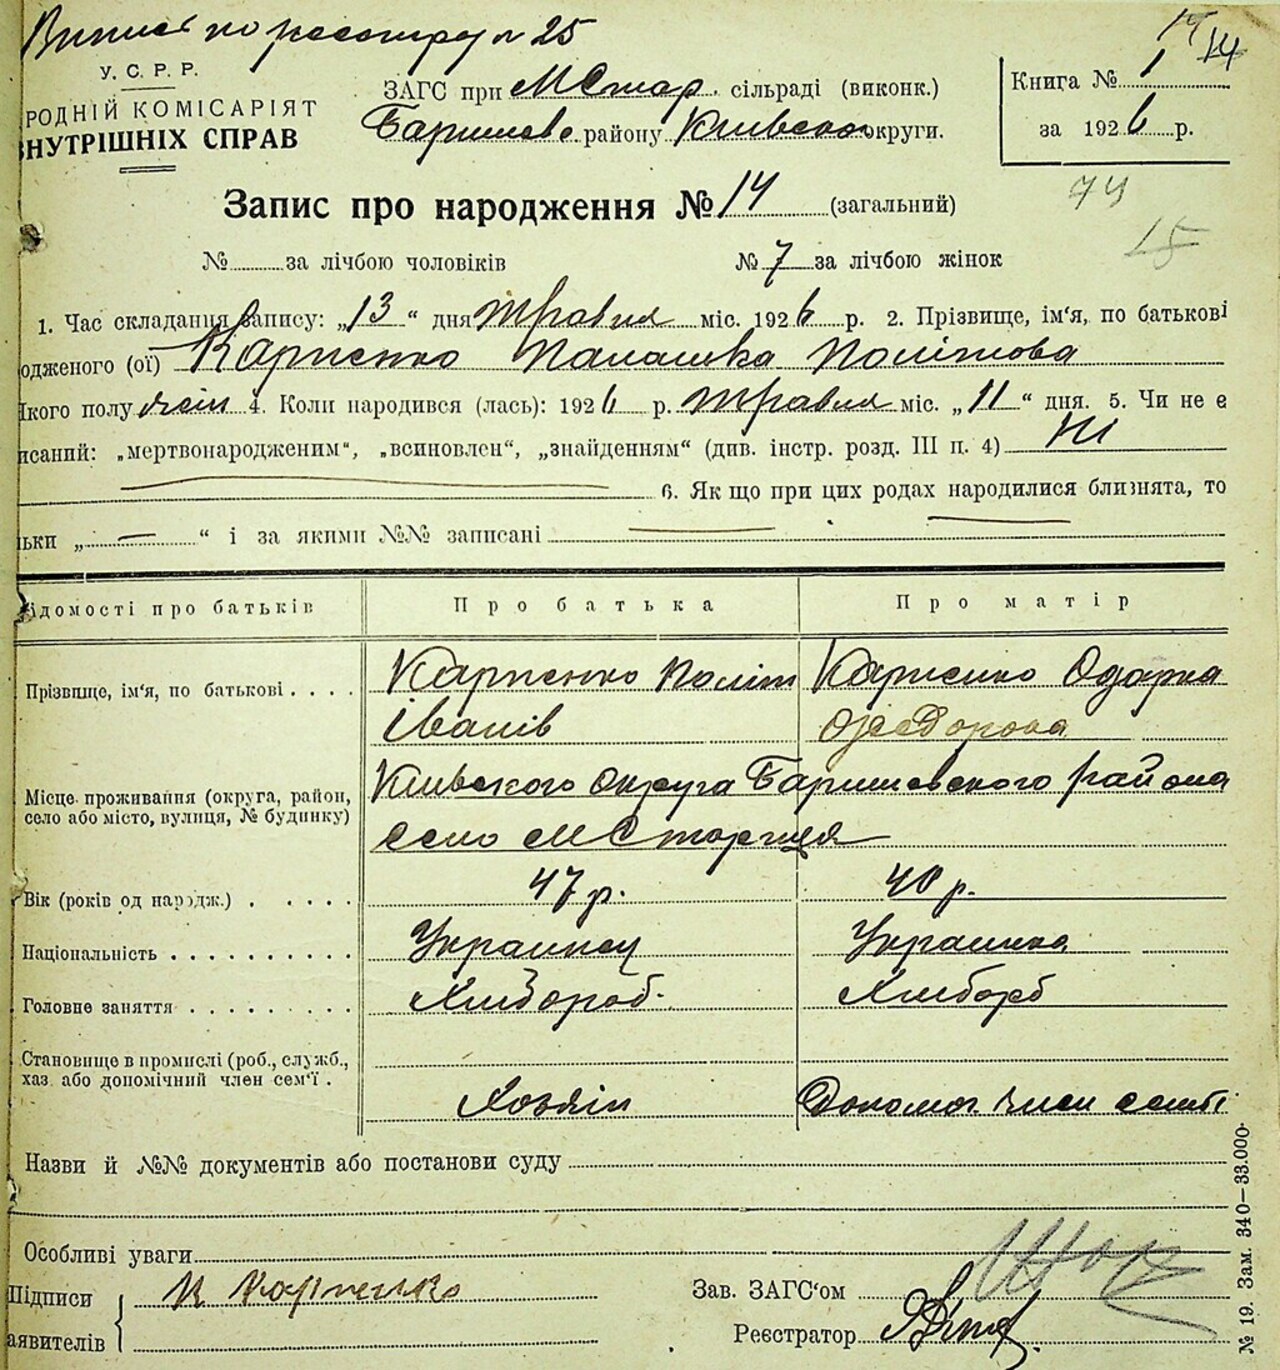 Випись по реестру № 25
14
У. С. Р. Р.
РОДНІЙ КОМІСАРІЯТ
ВНУТРІШНІХ СПРАВ
ЗАГС при МСтар. сільраді (виконк.)
Баришевс району Київської округи.
Книга № 1
за 1926 р.
Запис про народження № 14 (загальний)
74
15
№ за лічбою чоловіків № 7 за лічбою жінок
1. Час складання запису: „13“ дня травня міс. 1926 р. 2. Прізвище, ім'я, по батькові
одженого (ої) Карпенко Палашка Політова
Якого полу жін 4. Коли народився (лась): 1926 р. травня міс. „11“ дня. 5. Чи не є
исаний: „мертвонародженим“, „всиновлен“, „знайденням“ (див. інстр. розд. III п. 4) Ні
6. Як що при цих родах народилися близнята, то
ьки „—“ і за якими №№ записані
ідомості про батьків Про батька Про матір
Прізвище, ім'я, по батькові . . . . Карпенко Політ Карпенко Одарка
Іванів Ѳеодорова
Місце проживання (округа, район, село або місто, вулиця, № будинку) Киівского округа Баришевского района
село МСтариця
Вік (років од народж.) . . . . . 47 р. 40 р.
Національність . . . . . . . . . . Украинец Украинка
Головне заняття . . . . . . . . . Хлибороб. Хлиборб
Становище в промислі (роб., служб.,
хаз. або допомічний член сем'ї .
Хозяін Допомог. член семьі
Назви й №№ документів або постанови суду
Особливі уваги
Підписи К Карпенко
аявителів
Зав. ЗАГС'ом
Реєстратор
№ 19. Зам. 340—33.000.